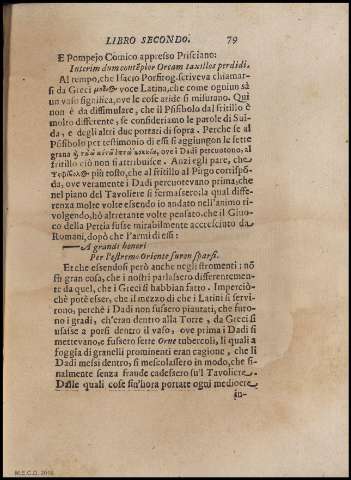 LIBRO SECONDO. 79
E Pompejo Comico appresso Prisciano:
Interim dum contẽplor Orcam taxillos perdidi.
Al tempo, che Isacio Porfirog. scriveva chiamar-
si da Greci voce Latina, che come ognun sà
un vaso significa, ove le cose aride si misurano. Qui
non è da dissimulare, che il Psifobolo dal fritillo è
molto differente, se consideriamo le parole di Sui-
da, e degli altri due portati di sopra. Perche se al
Psifobolo per testimonio di essi si aggiungon le sette
grana ove i Dadi percuotono, al
fritillo ciò non si attribuisce. Anzi egli pare, che
più tosto, che al fritillo al Pirgo corrispõ-
da, ove veramente i Dadi percuotevano prima, che
nel piano del Tavoliere si fermassero: la qual diffe-
renza molte volte essendo io andato nell'animo ri-
volgendo, hò altretante volte pensato, che il Giuo-
co della Persia fusse mirabilmente accresciuto da
Romani, dopò che l'armi di essi:
— A grandi honori
Per l'estremo Oriente furon sparsi.
Et che essendosi però anche negli stromenti: nõ
sii gran cosa, che i nostri parlassero differentemen-
te da quel, che i Greci si habbian fatto. Imperciò-
chè potè esser, che il mezzo di che i Latini si servi-
rono, perchè i Dadi non fussero piautati, che furo-
no i gradi, ch'eran dentro alla Torre, da Greci si
usasse a porsi dentro il vaso, ove prima i Dadi si
mettevano, e fussero sette Orne tubercoli, li quali a
foggia di granelli prominenti eran cagione, che li
Dadi messi dentro, si mescolassero in modo, che fi-
nalmente senza fraude cadessero su'l Tavoliere.
Dalle quali cose sin'hora portate ogni mediocre
in-
M.E.C.D. 2016